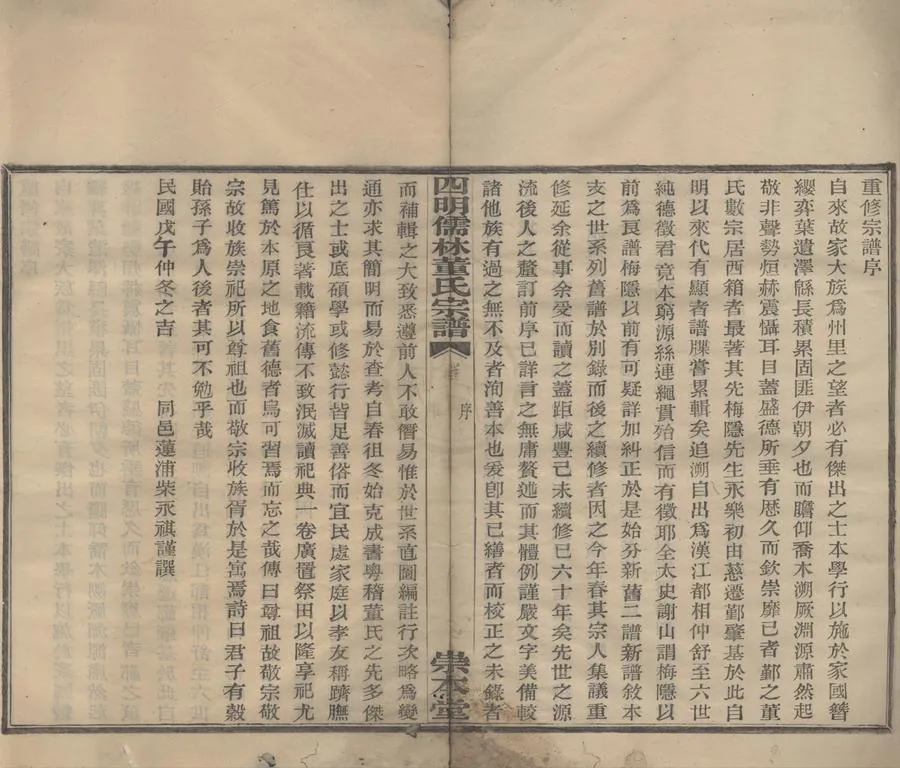 重修宗譜序
自來故家大族爲州里之望者必有傑出之士本學行以施於家國簪
纓弈葉遺澤緜長積累固匪伊朝夕也而瞻仰喬木溯厥淵源肅然起
敬非聲勢烜赫震懾耳目蓋盛德所垂有歷久而欽崇靡已者鄞之董
氏數宗居西箱者最著其先梅隱先生永樂初由慈遷鄞肇基於此自
明以來代有顯者譜牒嘗累輯矣追溯自出爲漢江都相仲舒至六世
純德徵君竟本窮源絲連繩貫殆信而有徵耶全太史謝山謂梅隱以
前爲良譜梅隱以前有可疑詳加糾正於是始分新舊二譜新譜敘本
支之世系列舊譜於別錄而後之續修者因之今年春其宗人集議重
修延余從事余受而讀之蓋距咸豐己未續修已六十年矣先世之源
流後人之釐訂前序已詳言之無庸贅述而其體例謹嚴文字美備較
諸他族有過之無不及者洵善本也爰卽其已繕者而校正之未錄者
四明儒林董氏宗譜
序
崇本堂
而補輯之大致悉遵前人不敢僭易惟於世系直圖編註行次略爲變
通亦求其簡明而易於查考自春徂冬始克成書粵稽董氏之先多傑
出之士或底碩學或修懿行皆足善俗而宜民處家庭以孝友稱躋膴
仕以循良著載籍流傳不致泯滅讀祀典一卷廣置祭田以隆享祀尤
見篤於本原之地食舊德者烏可習焉而忘之哉傳曰尊祖故敬宗敬
宗故收族崇祀所以尊祖也而敬宗收族胥於是寓焉詩曰君子有穀
貽孫子爲人後者其可不勉乎哉
民國戊午仲冬之吉 同邑蓮浦柴永祺謹譔